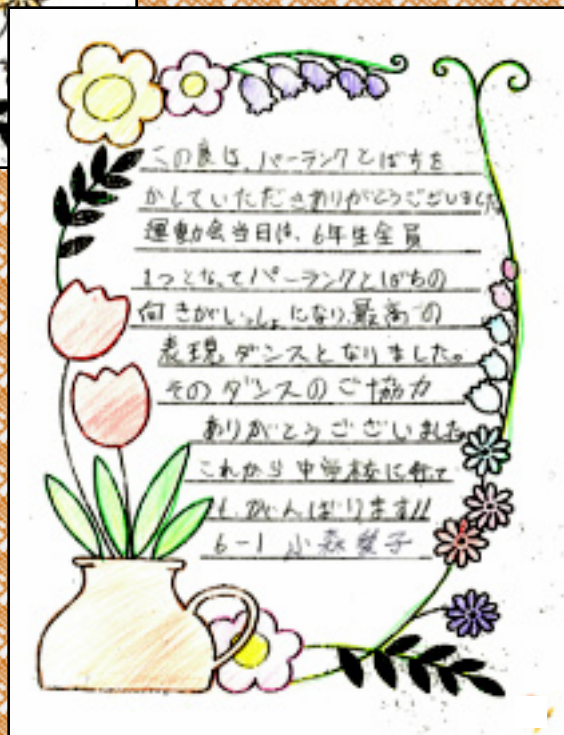 この度は、パーランクとばちを
かしていただきありがとうございました
運動会当日は、6年生全員
1つとなってパーランクとばちの
向きがいっしょになり、最高の
表現ダンスとなりました。
そのダンスのご協力
ありがとうございました
これから中学校に行って
も、がんばります!!
6-1 小森愛子